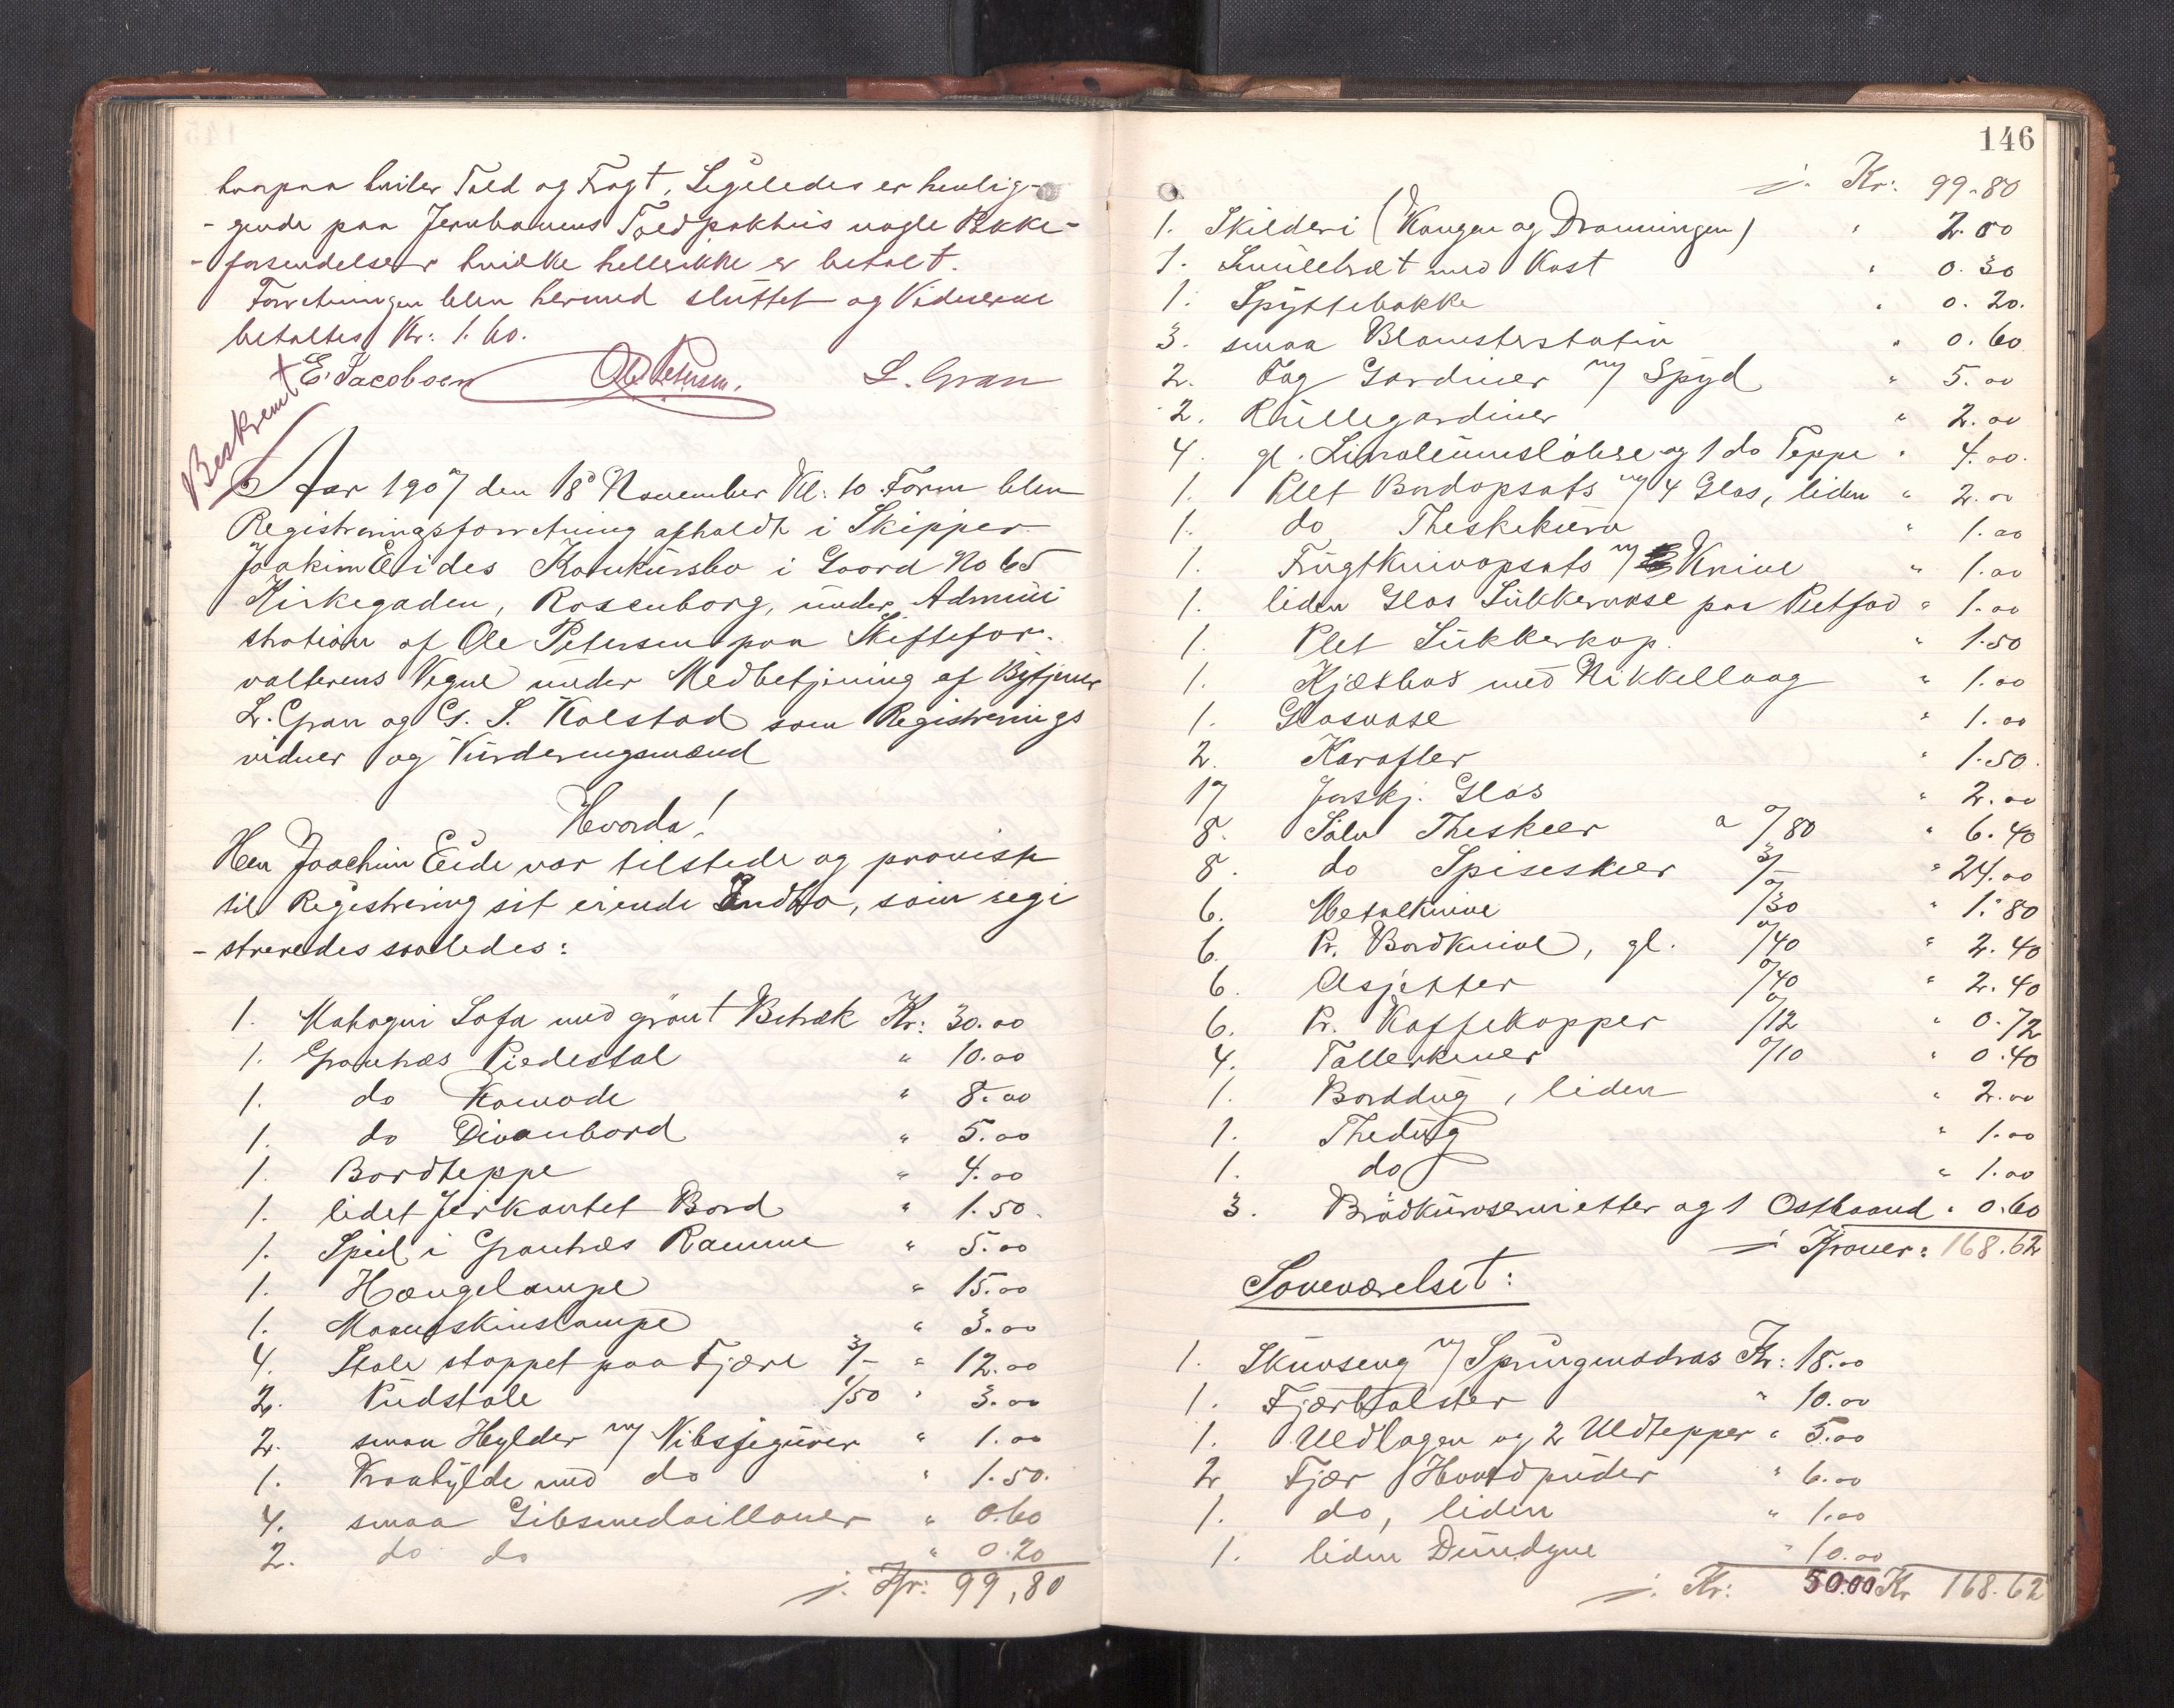 hvorpaa hviler Told og Fragt. Ligeledes er henlig-
-gende paa Jernbanens Toldpakhus nogle Pakke-
-forsendelser hvilke hellerikke er betalt.
Forretningen blev hermed sluttet og Vidnerne
betaltes Kr: 1.60.
E. Jacobsen Ole Petersen. L. Gran
Beskrevet
Aar 1907 den 18 November Kl: 10 Form blev
Registreringsforretning afholdt i Skipper
Joakim Eides Konkursbo i Gaard No 65
Kirkegaden, Rosenborg, under Admini
stration af Ole Petersen paa Skiftefor-
valterens Vegne under Medbetjening af Bytjener
L. Gran og G. S. Kolstad som Registrerings
vidner og Vurderingsmænd
Hvorda!
Herr Joachim Eide var tilstede og proviste
til Registrering sit eiende Indbo, som regi
-streredes saaledes:
1. Mahogni Sofa med grønt Betræk Kr: 30.00
1. Grantræs Piedestal " 10.00
1. do Komode " 8.00
1. do Divanbord " 5.00
1. Bordteppe " 4.00
1. lidet firkantet Bord " 1.50.
1. Speil i Grantræs Ramme " 5.00
1. Hængelampe " 15.00
1. Maaneskinslampe " 3.00
4. Stole stoppet paa Fjære 3/- " 12.00
2. Pudstole 1/50 " 3.00
2. smaa Hylder m/ Nibsfigurer " 1.00
1. Kraahylde med do " 1.50.
4. smaa Gibsmedailloner " 0.60
2. do do " 0.20
j. Kr: 99,80
146
j. Kr: 99.80
1. Skilderi (Kongen og Dronningen) " 2.00
1. Smulebræt med Kost " 0.30
1. Spyttebakke " 0.20.
3. smaa Blomsterstativ " 0.60
2. Fag Gardiner m/ Spyd " 5.00
2. Rullegardiner " 2.00
4. gl. Linoleumsløbere og 1 do Teppe " 4.00.
1. Plet Bordopsats m/ 4 Glas, liden " 2.00
1. do Theskekurv " 1.00
1. Frugtknivopsats m/ 6 Knive " 1.00
1. liden Glas Sukkervase paa Pletfod " 1.00
1. Plet Sukkerkop. " 1.50
1. Kjæxbox med Nikkellaag " 1.00
1. Glasvase " 1.00
2. Karafler " 1.50.
17 forskj. Glas " 2.00
8. Sølv Theskeer a 0/80 " 6.40
8. do Spiseskeer 3/- " 24.00
6. Metalknive 0/30 " 1.80
6. Pr. Bordknive, gl. 0/40 " 2.40
6. Asjetter 0/40 " 2.40
6. Pr. Kaffekopper 0/12 " 0.72
4. Tallerkener 0/10 " 0.40
1. Borddug, liden " 2.00
1. Thedug " 1.00
1. do " 1.00
3. Brødkurvservietter og 1 Ostbaand " 0.60
j. Kroner: 168.62
Soveværelset:
1. Skuvseng m/ Springmadras Kr: 18.00
1. Fjærbolster " 10.00
1. Uldlagen og 2 Uldtepper " 5.00
2 Fjær Hovedpuder " 6.00
1. do, liden " 1.00
1. liden Dundyne " 10.00
j. Kr: 50.00 Kr 168.62